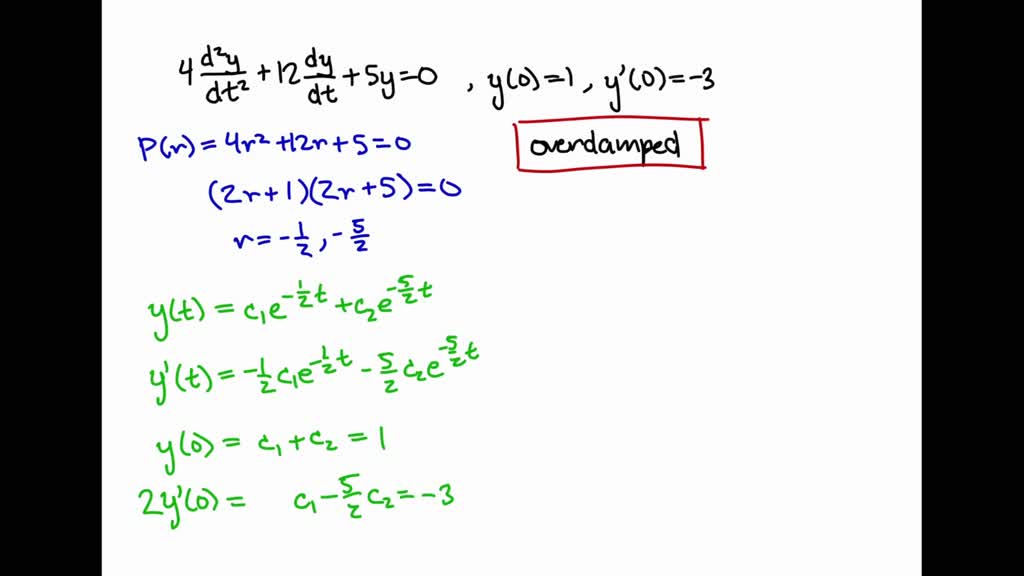 4 d²y/dt² + 12 dy/dt + 5y = 0 , y(0) = 1 , y'(0) = -3
P(r) = 4r² + 12r + 5 = 0
overdamped
(2r + 1)(2r + 5) = 0
r = -1/2 , -5/2
y(t) = c₁e^(-1/2 t) + c₂e^(-5/2 t)
y'(t) = -1/2 c₁e^(-1/2 t) - 5/2 c₂e^(-5/2 t)
y(0) = c₁ + c₂ = 1
2y'(0) = c₁ - 5/2 c₂ = -3